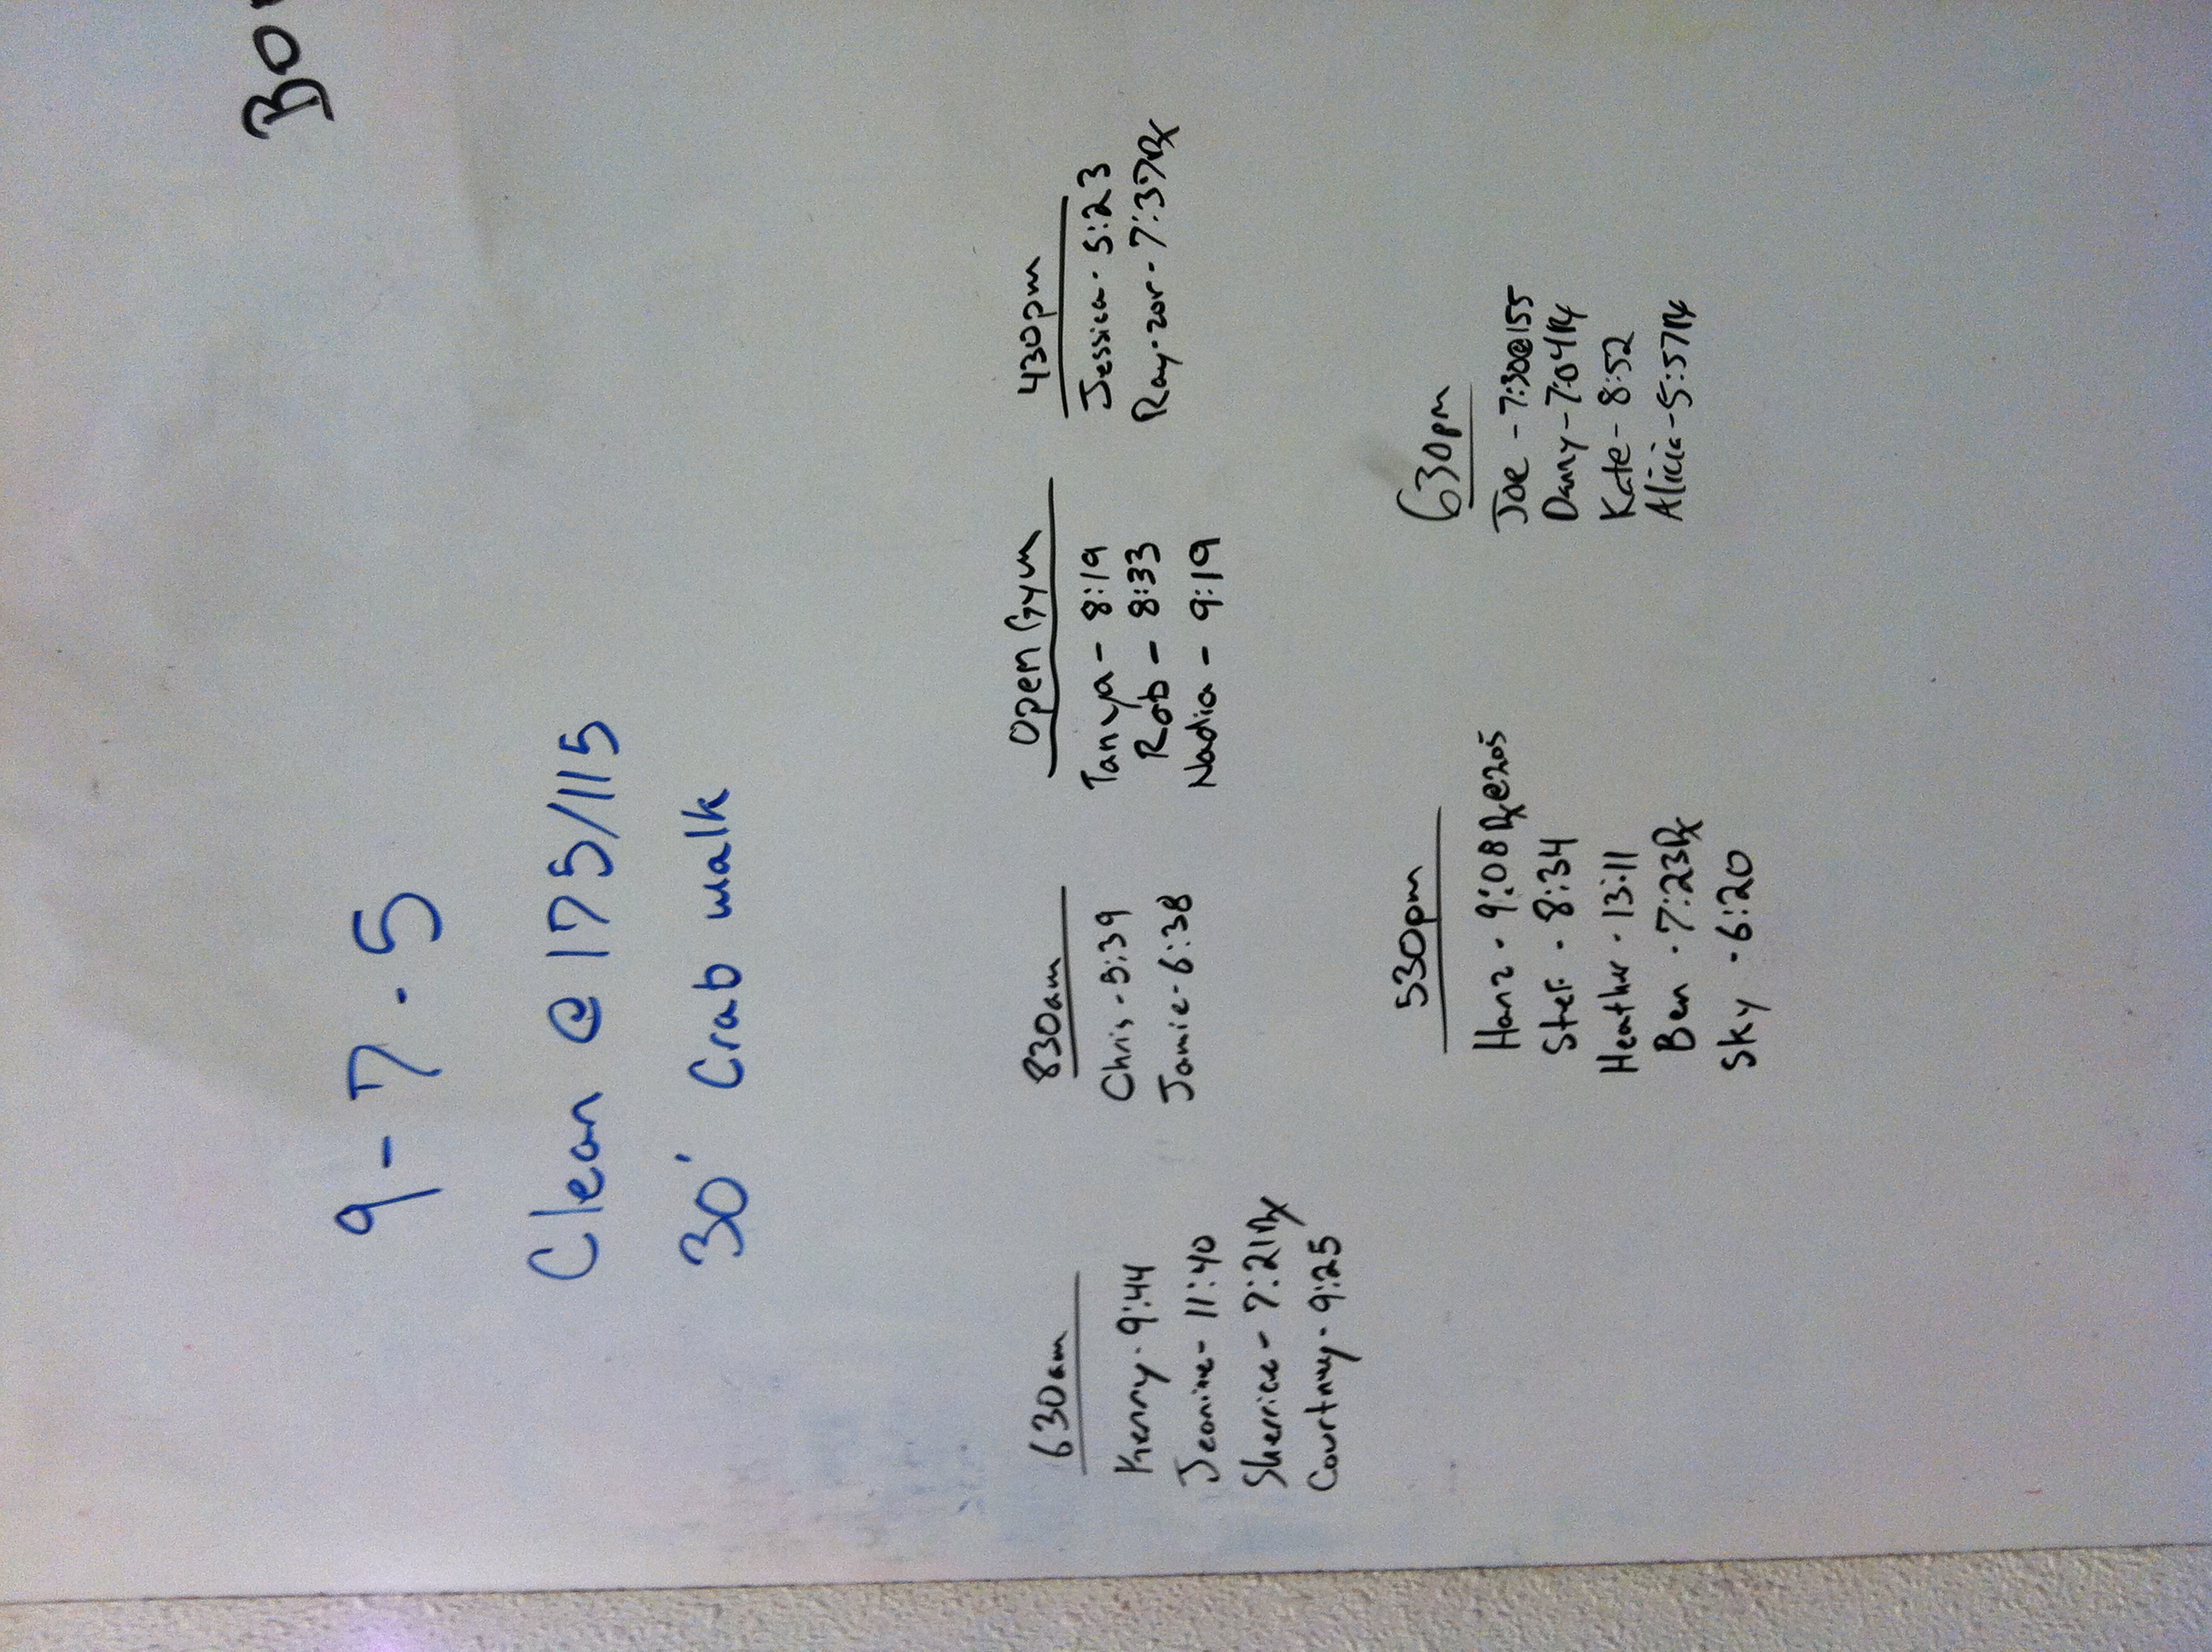 Bo
9-7-5
Clean @ 175/115
30' Crab walk
630am
Kenny - 9:44
Jeanine - 11:40
Sherrice - 7:21 Rx
Courtney - 9:25
830am
Chris - 5:39
Jamie - 6:38
Open Gym
Tanya - 8:19
Rob - 8:33
Nadia - 9:19
430pm
Jessica - 5:23
Ray-zor - 7:37 Rx
530pm
Hanz - 9:08 Rx @205
Stef - 8:34
Heather - 13:11
Ben - 7:23 Rx
Sky - 6:20
630pm
Joe - 7:30@155
Danny - 7:04 Rx
Kate - 8:52
Alicia - 5:57 Rx